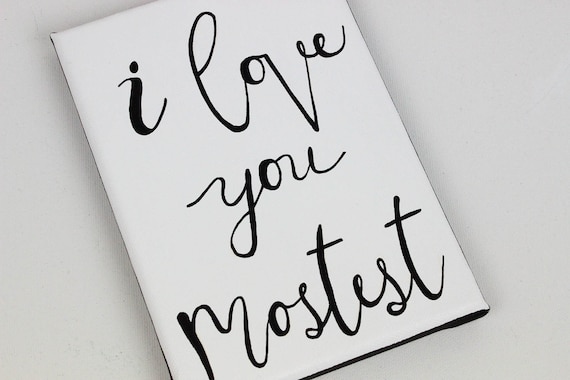 i love
you
mostest